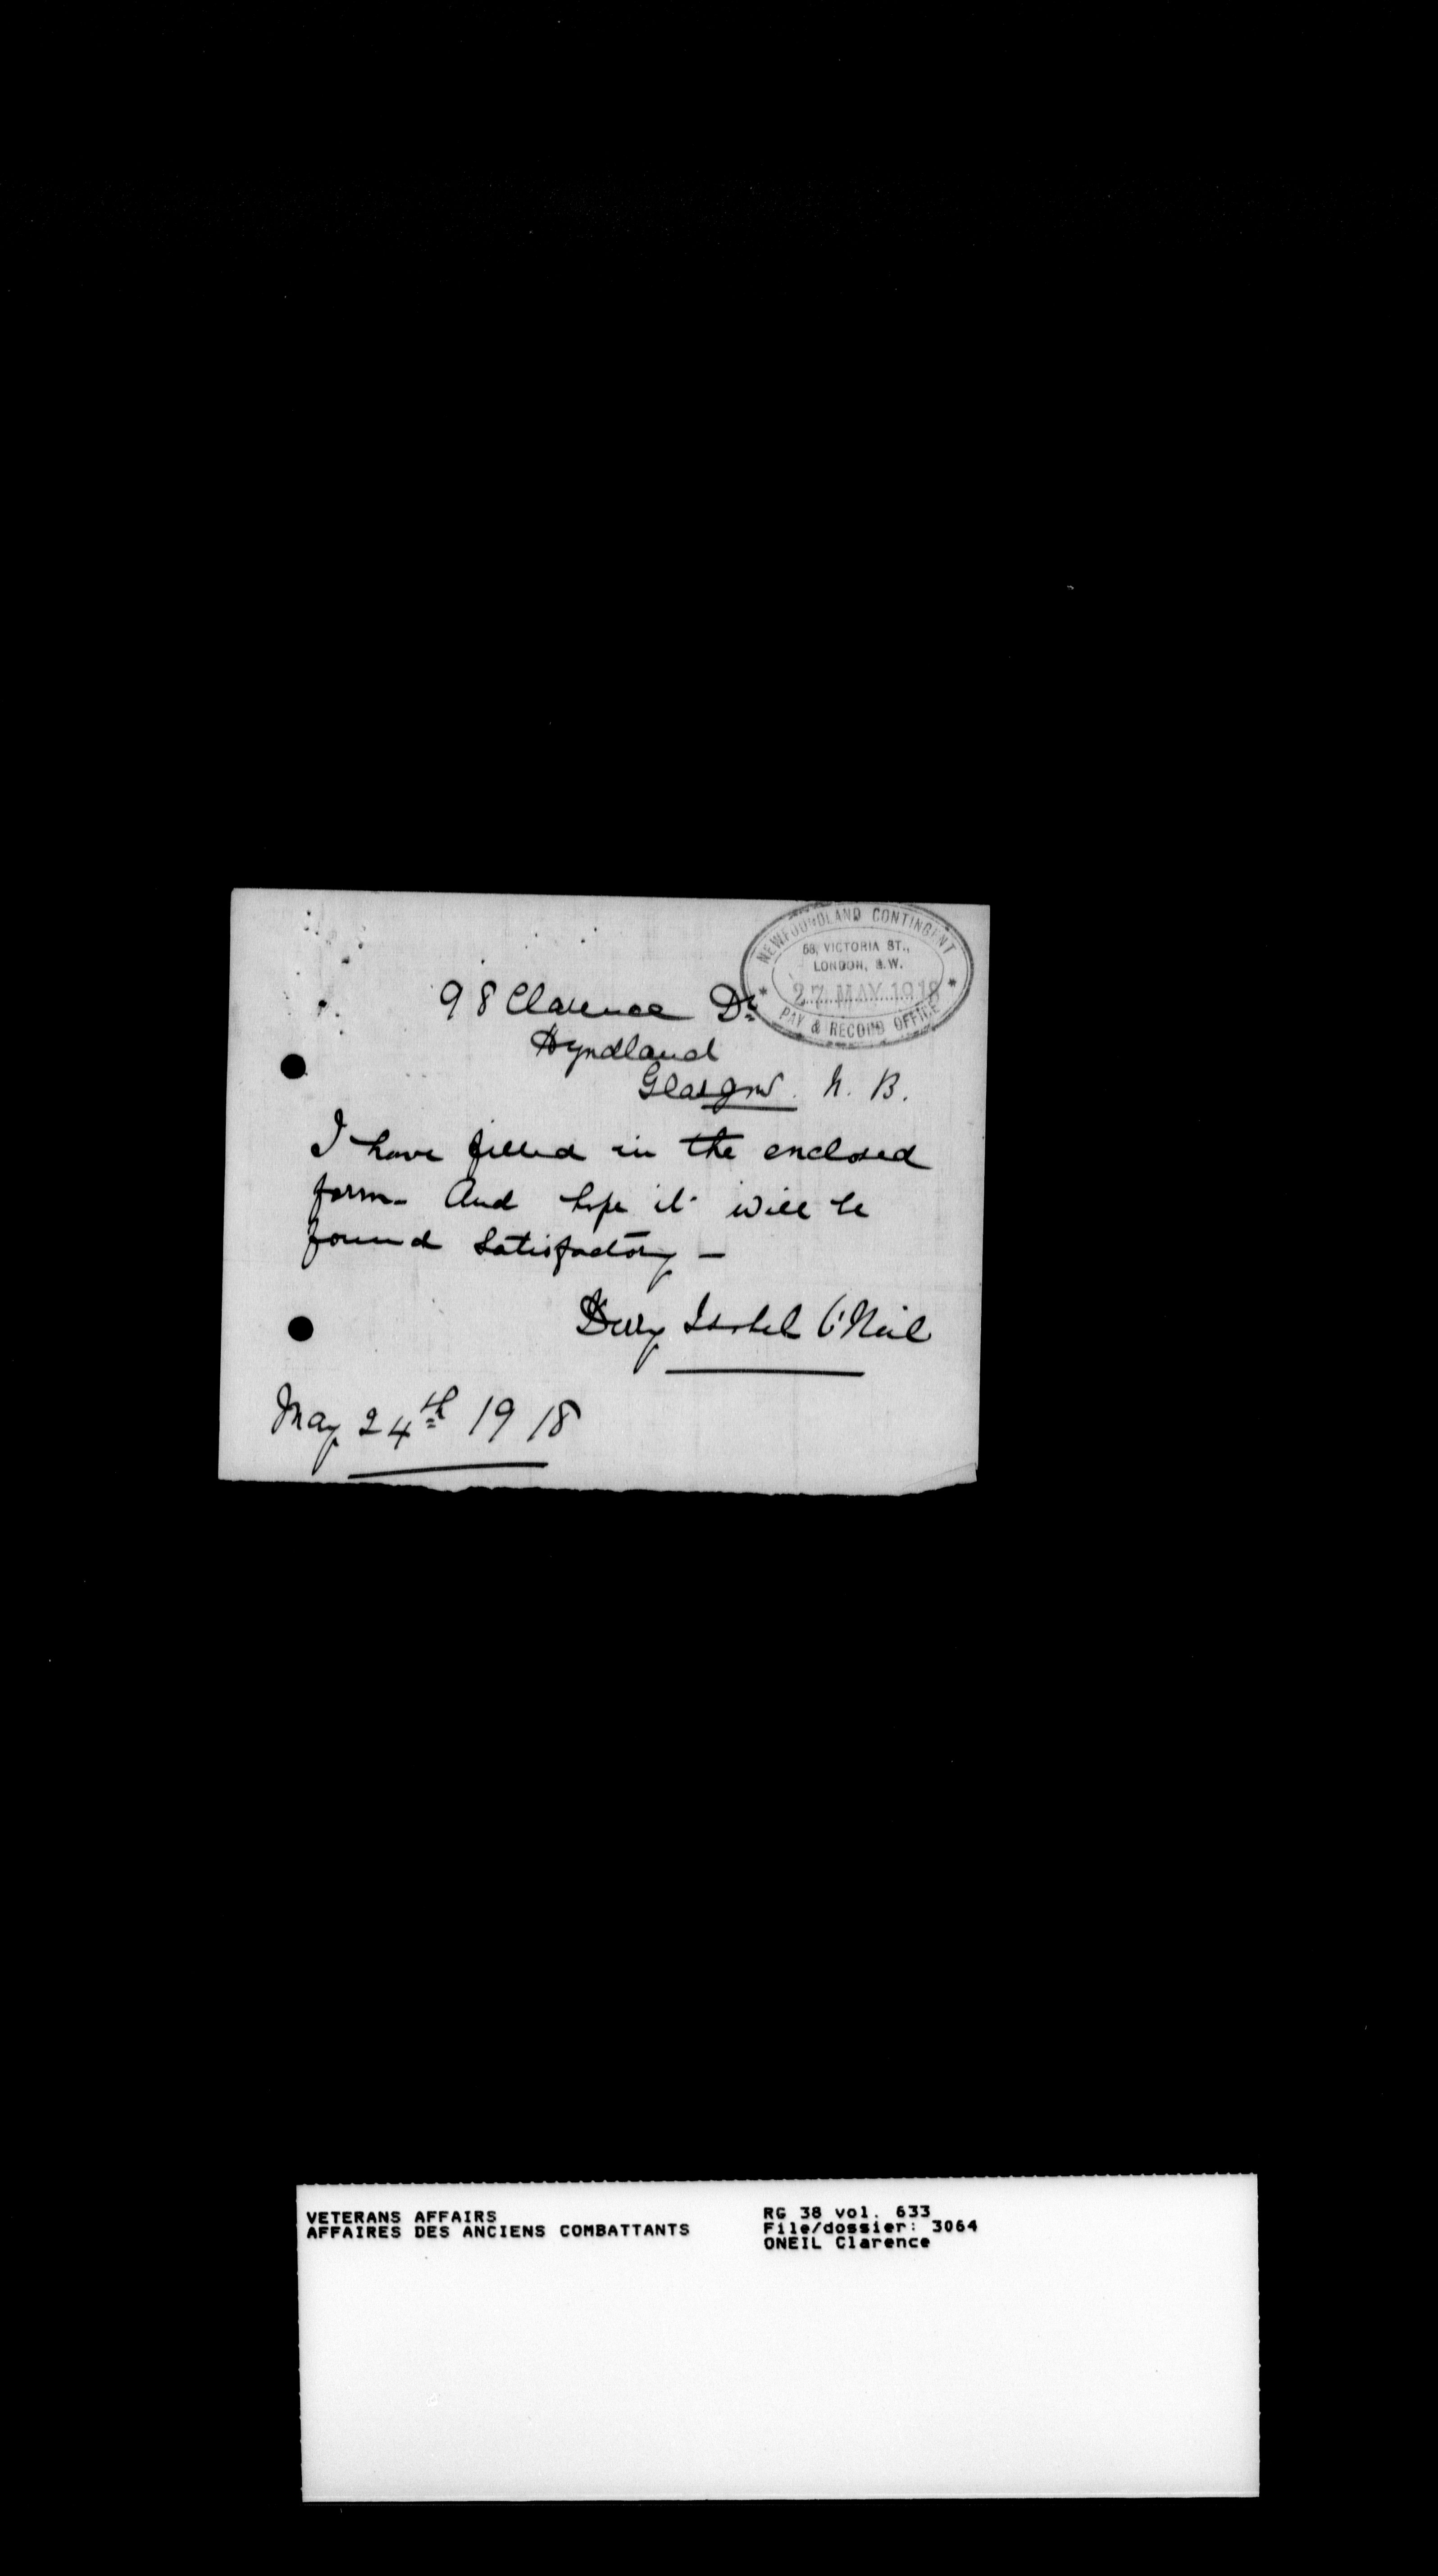 NEWFOUNDLAND CONTINGENT
58, VICTORIA ST.,
LONDON, S.W.
27 MAY 1918
PAY & RECORD OFFICE
98 Clarence Dr
Hyndland
Glasgow. N. B.
I have filled in the enclosed
form - And hope it will be
found Satisfactory -
Isobel O'Neil
May 24th 1918
VETERANS AFFAIRS
AFFAIRES DES ANCIENS COMBATTANTS
RG 38 vol. 633
File/dossier: 3064
ONEIL Clarence